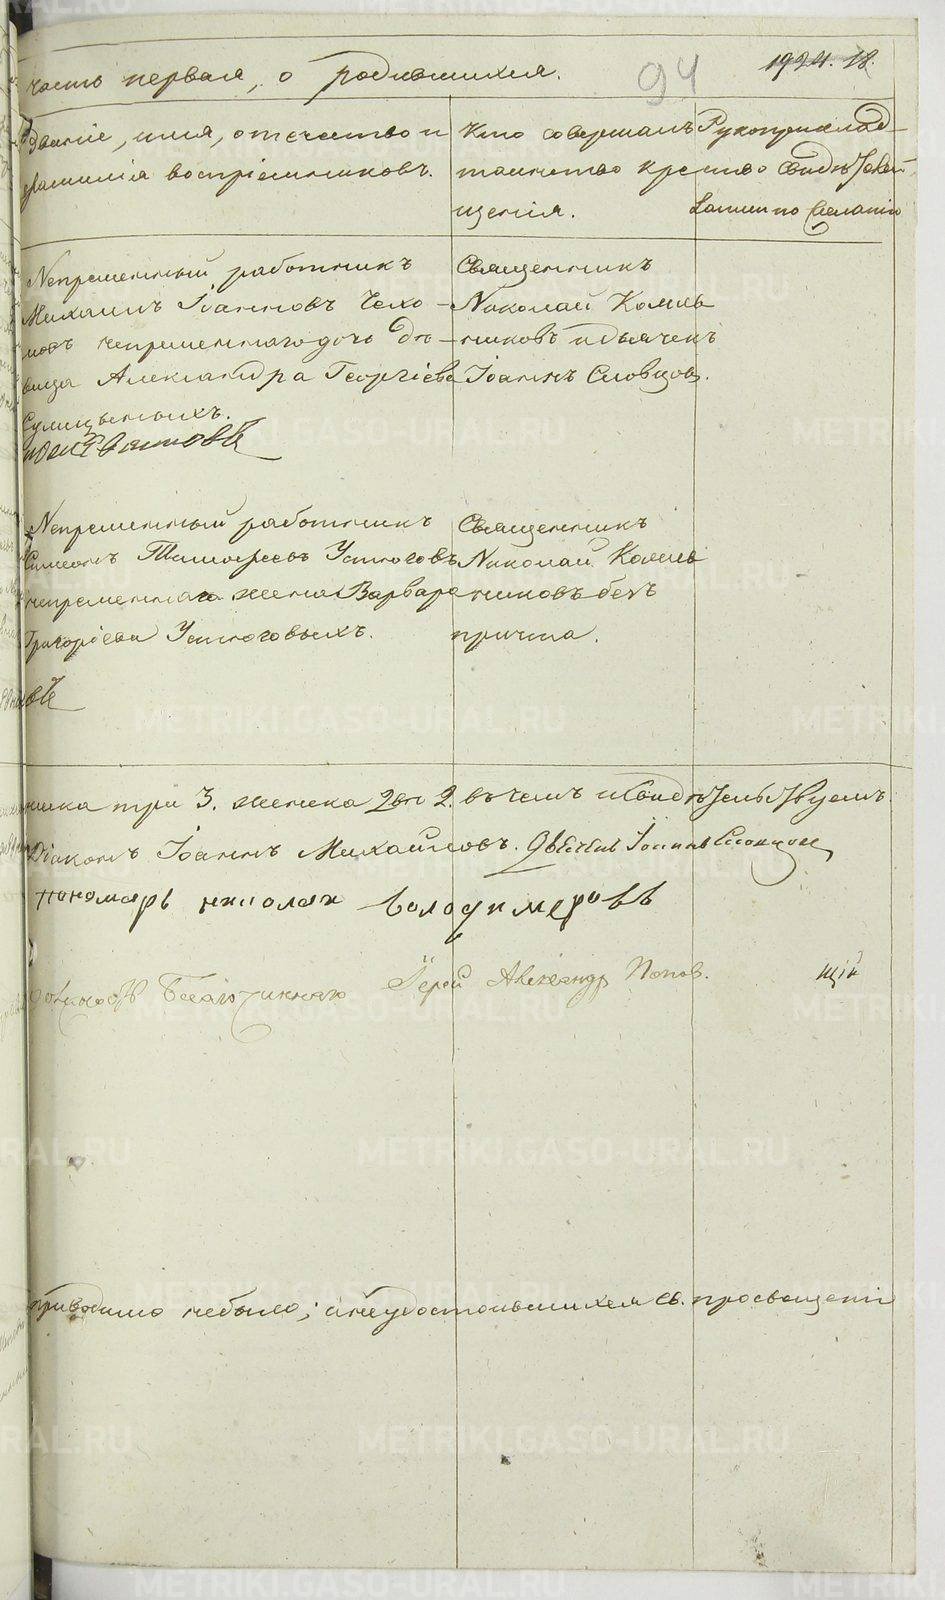 часть первая, о родившихся.
94
Званіе, имя, отечество и
фамилія воспріемниковъ.
Кто совершалъ
таинство кре-
щенія.
Рукоприклад-
ство Свидѣтелей
записи по желанію
Непременный работникъ
Михаилъ Іоанновъ
непременнаго дочь дѣ-
вица Александра Георгіева
Священникъ
Николай
никовъ и дьячекъ
Іоаннъ Словцов.
Непременный работникъ
Симеонъ Тимофеевъ Устюговъ
непременнаго жена Варвара
Григоріева Устюговыхъ.
Священникъ
Николай
никовъ безъ
причта.
три 3. женска 2 въ чемъ и Свидѣтельствуемъ.
Діаконъ Іоаннъ Михайловъ. Іоаннъ Словцов
пономарь николай володимеровъ
Іерей Александр Попов.
щій
приводимо небыло; а неудостоившихся св. просвещенія
METRIKI.GASO-URAL.RU